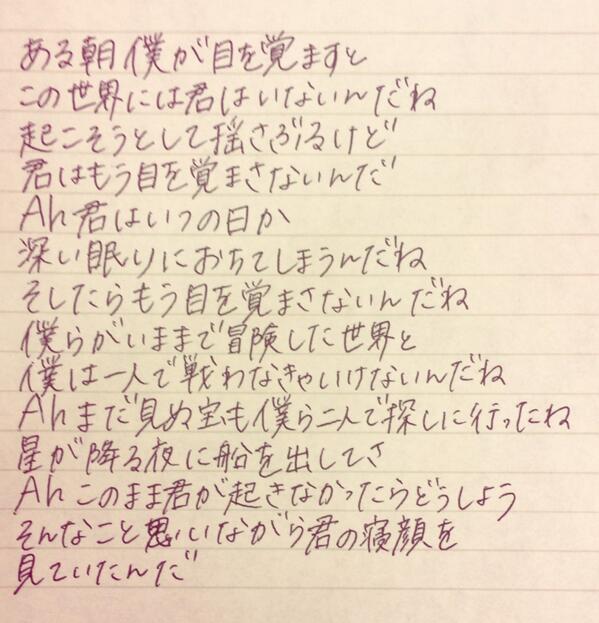 ある朝僕が目を覚ますと
この世界には君はいないんだね
起こそうとして揺さぶるけど
君はもう目を覚まさないんだ
Ah 君はいつの日か
深い眠りにおちてしまうんだね
そしたらもう目を覚まさないんだね
僕らがいままで冒険した世界と
僕は一人で戦わなきゃいけないんだね
Ah まだ見ぬ宝も僕ら二人で探しに行ったね
星が降る夜に船を出してさ
Ah このまま君が起きなかったらどうしよう
そんなこと思いながら君の寝顔を
見ていたんだ